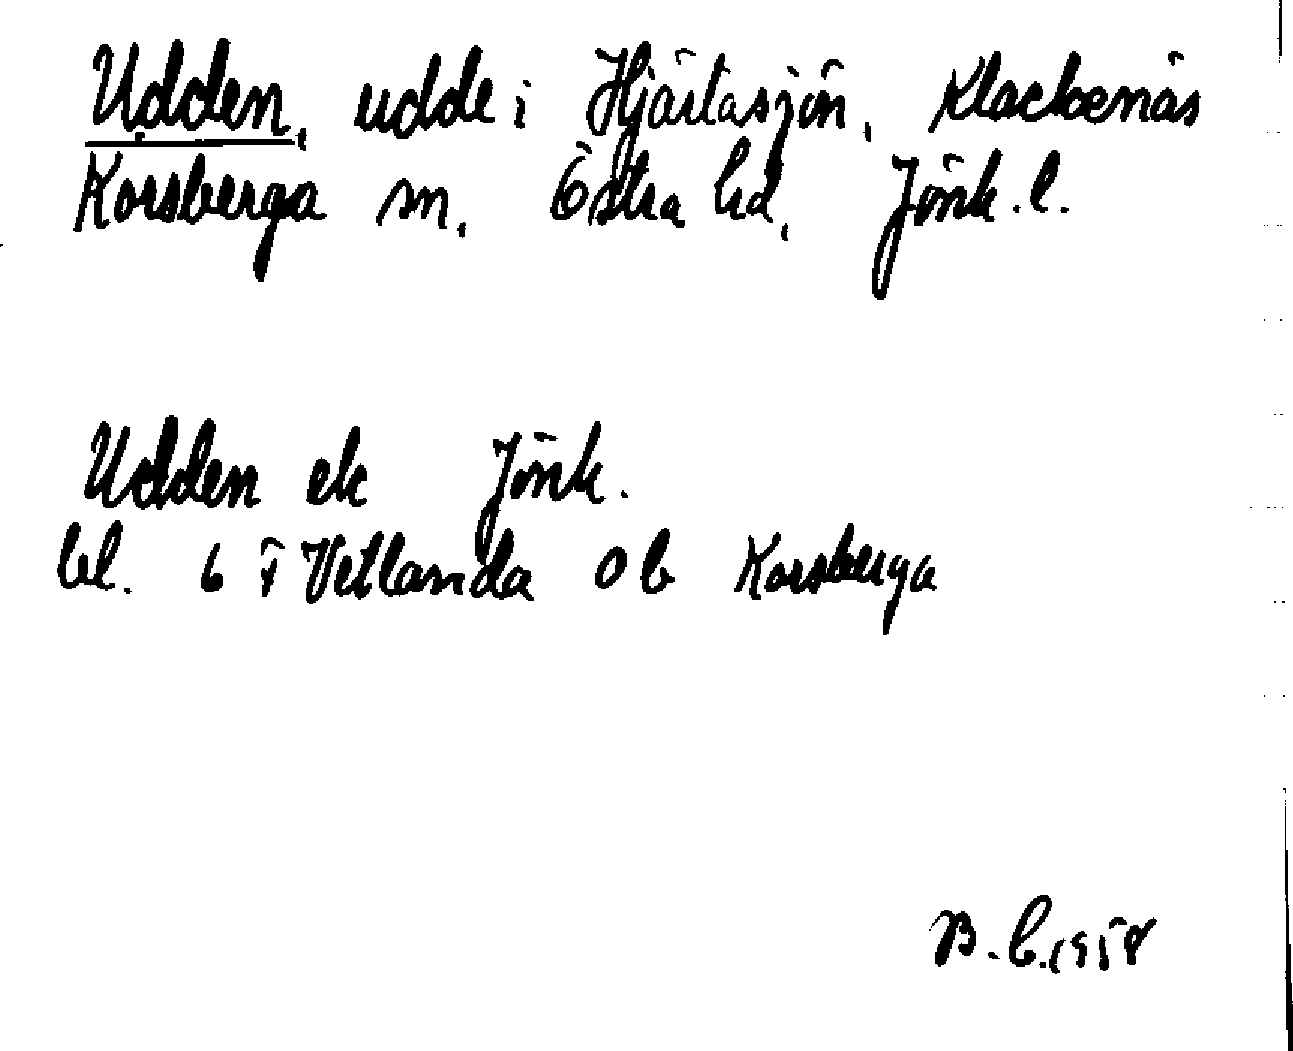 Udden, udde i Hjärtasjön, Klackenäs
Korsberga sn, Östra hd, Jönk. l.
Udden ek Jönk.
bl. 6 Vetlanda Ob Korsberga
B. C. 1958